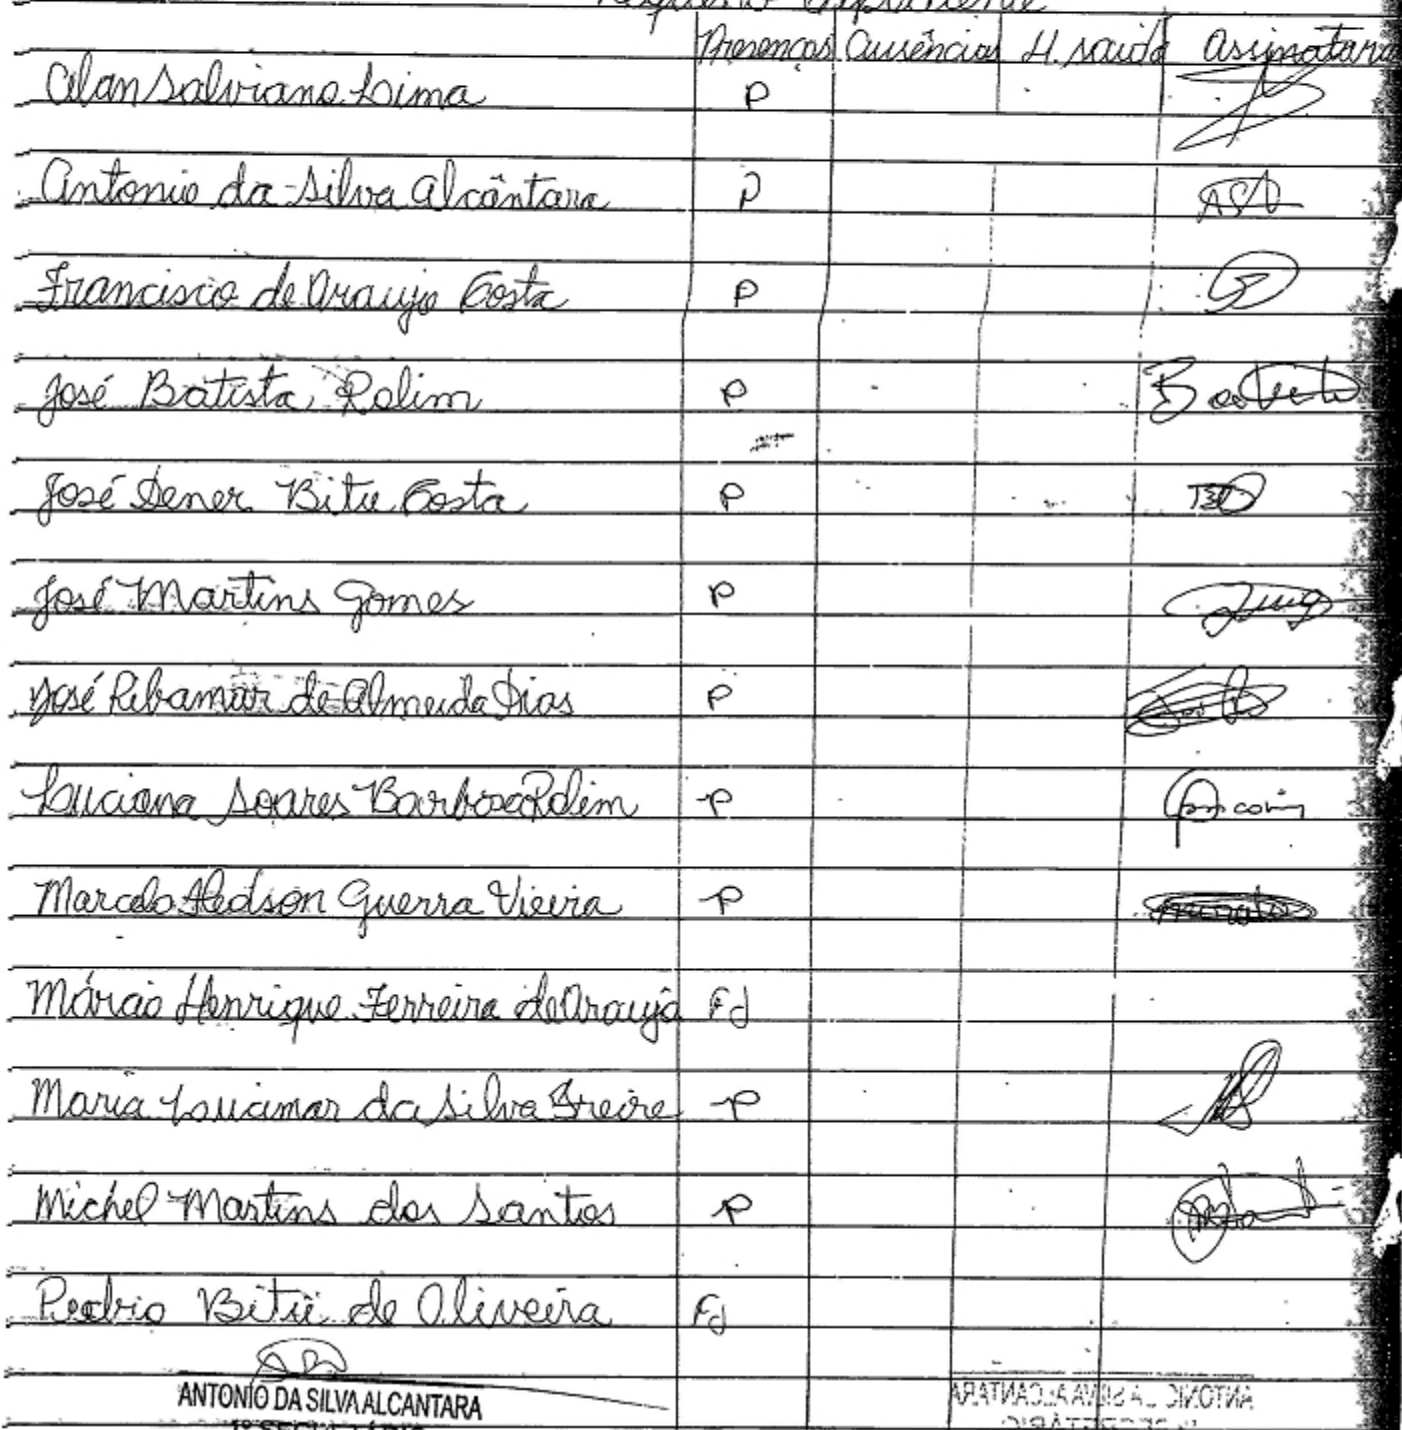 Presenças Ausências H. saída Assinatura
Alan Salviano Lima P
Antonio da Silva Alcântara P
Francisco de Araujo Costa P
José Batista Rolim P Batista
José Dener Bitu Costa P
José Martins Gomes P
José Ribamar de Almeida Dias P
Luciana Soares Barbosa Rolim P
Marcelo Hedson Guerra Vieira P
Márcio Henrique Ferreira de Araujo FJ
Maria Lucimar da Silva Freire P
Michel Martins dos Santos P
Pedrio Bitú de Oliveira FJ
ANTONIO DA SILVA ALCANTARA
1º SECRETÁRIO